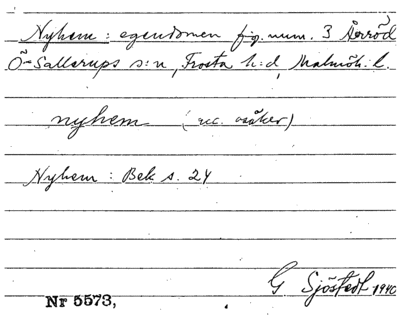 Nyhem : egendomen fig. num. 3 Åsröd
Ö-Sallerups s:n, Frosta h:d, Malmöh. l.
nyhem (rec. osäker)
Nyhem : Bek s. 24
G Sjöstedt 1940
Nr 5573,